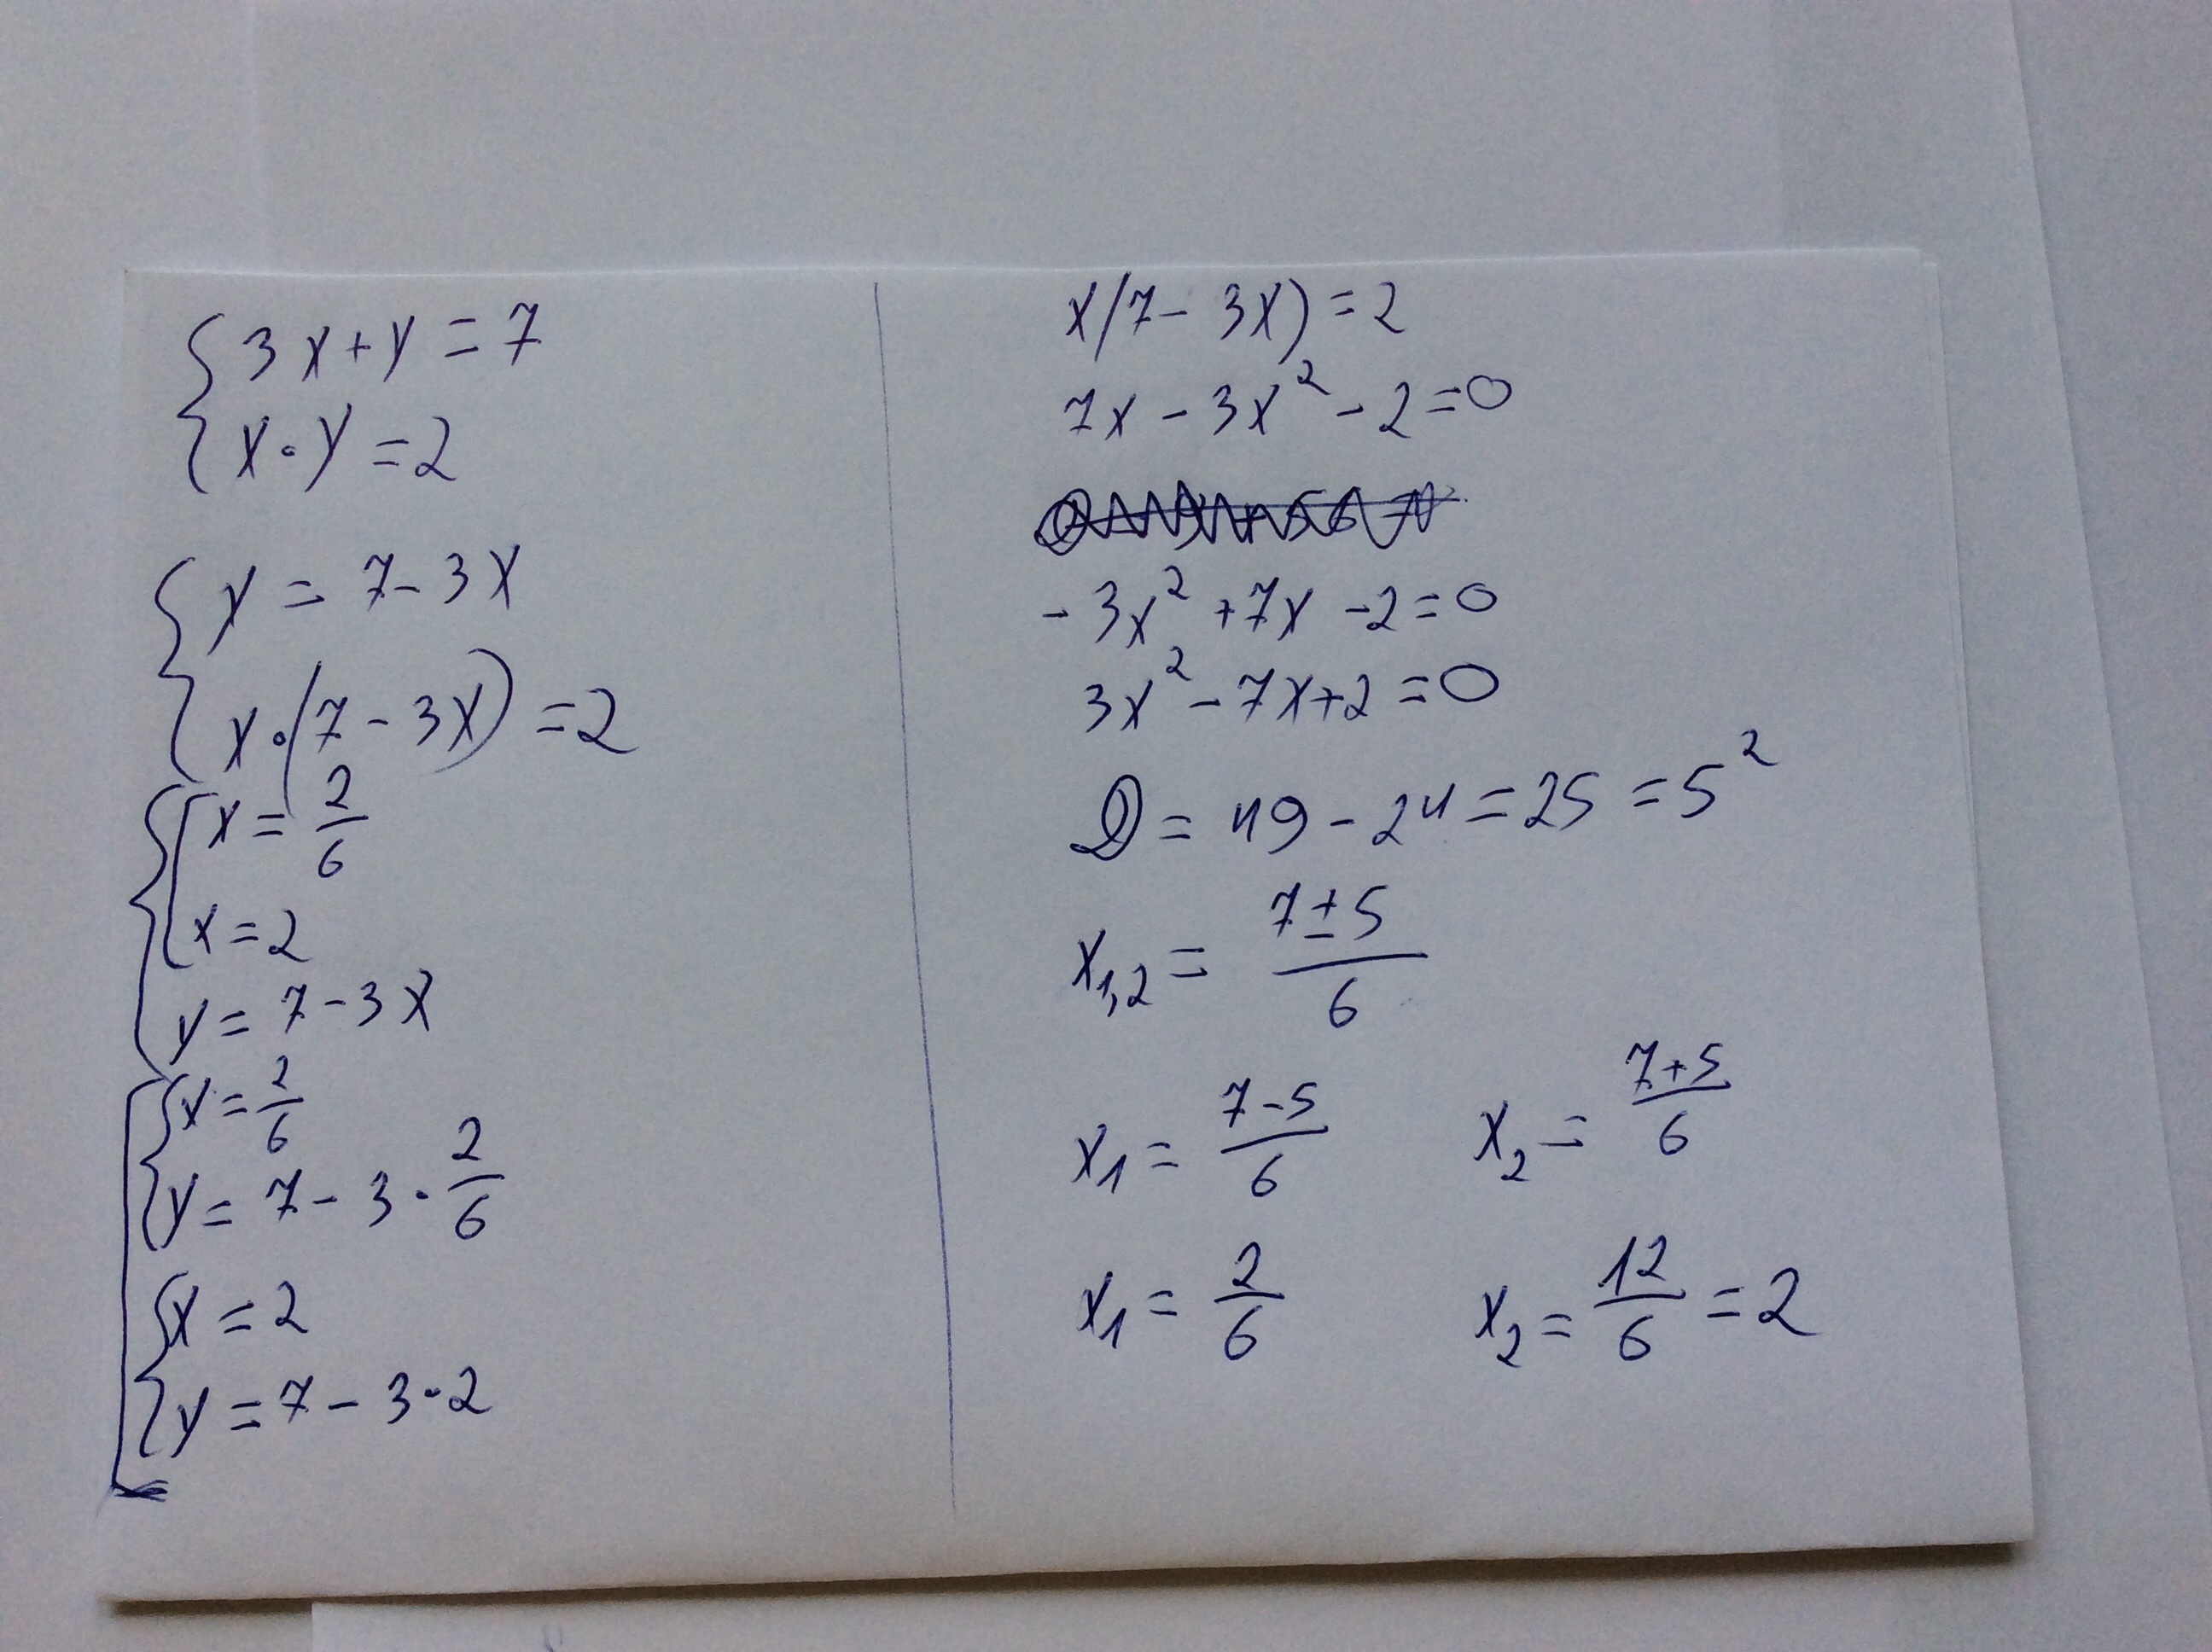 3x+y=7
x·y=2
y=7-3x
x·(7-3x)=2
x=2/6
x=2
y=7-3x
x=2/6
y=7-3·2/6
x=2
y=7-3·2
x(7-3x)=2
7x-3x²-2=0
-3x²+7x-2=0
3x²-7x+2=0
D=49-24=25=5²
x₁,₂=(7±5)/6
x₁=(7-5)/6 x₂=(7+5)/6
x₁=2/6 x₂=12/6=2